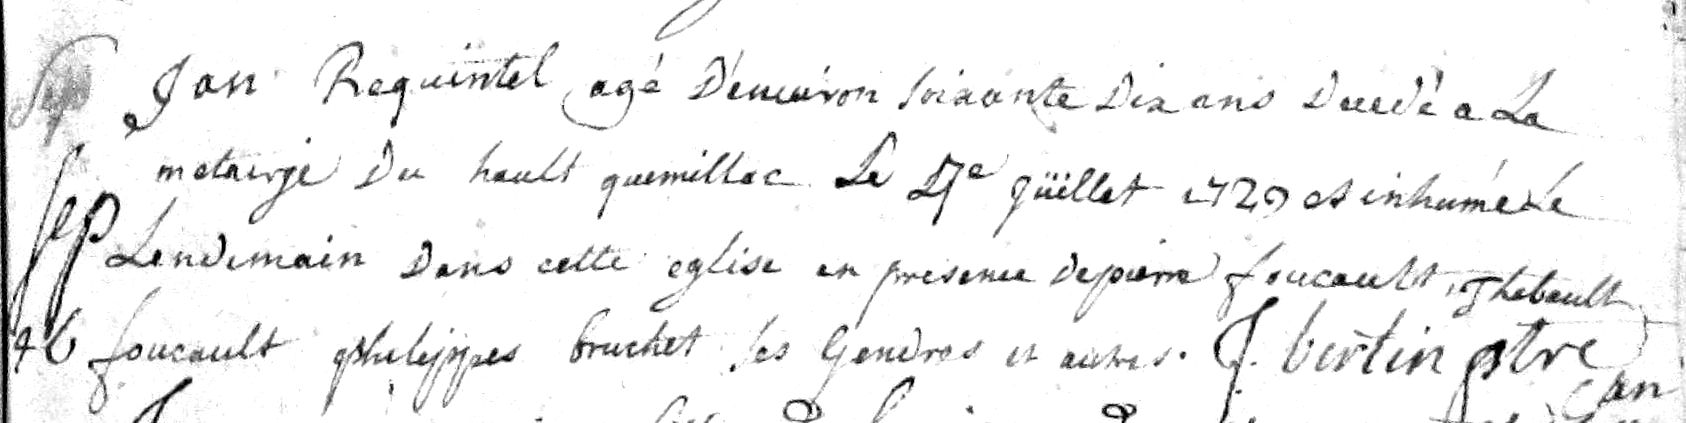 Jan Requintel agé d'enuiron soixante dix ans decedé a La
metairje du hault quemillac Le 27e jüillet 1729 et inhumé Le
sep Lendemain dans cette eglise en presence de pierre foucault, Thebault
46 foucault philippes bruchet ses Gendres et autres. J. bertin ptre